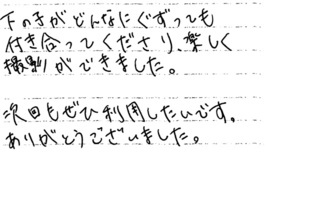 下の子がどんなにぐずっても
付き合ってくださり、楽しく
撮影ができました。
次回もぜひ利用したいです。
ありがとうございました。